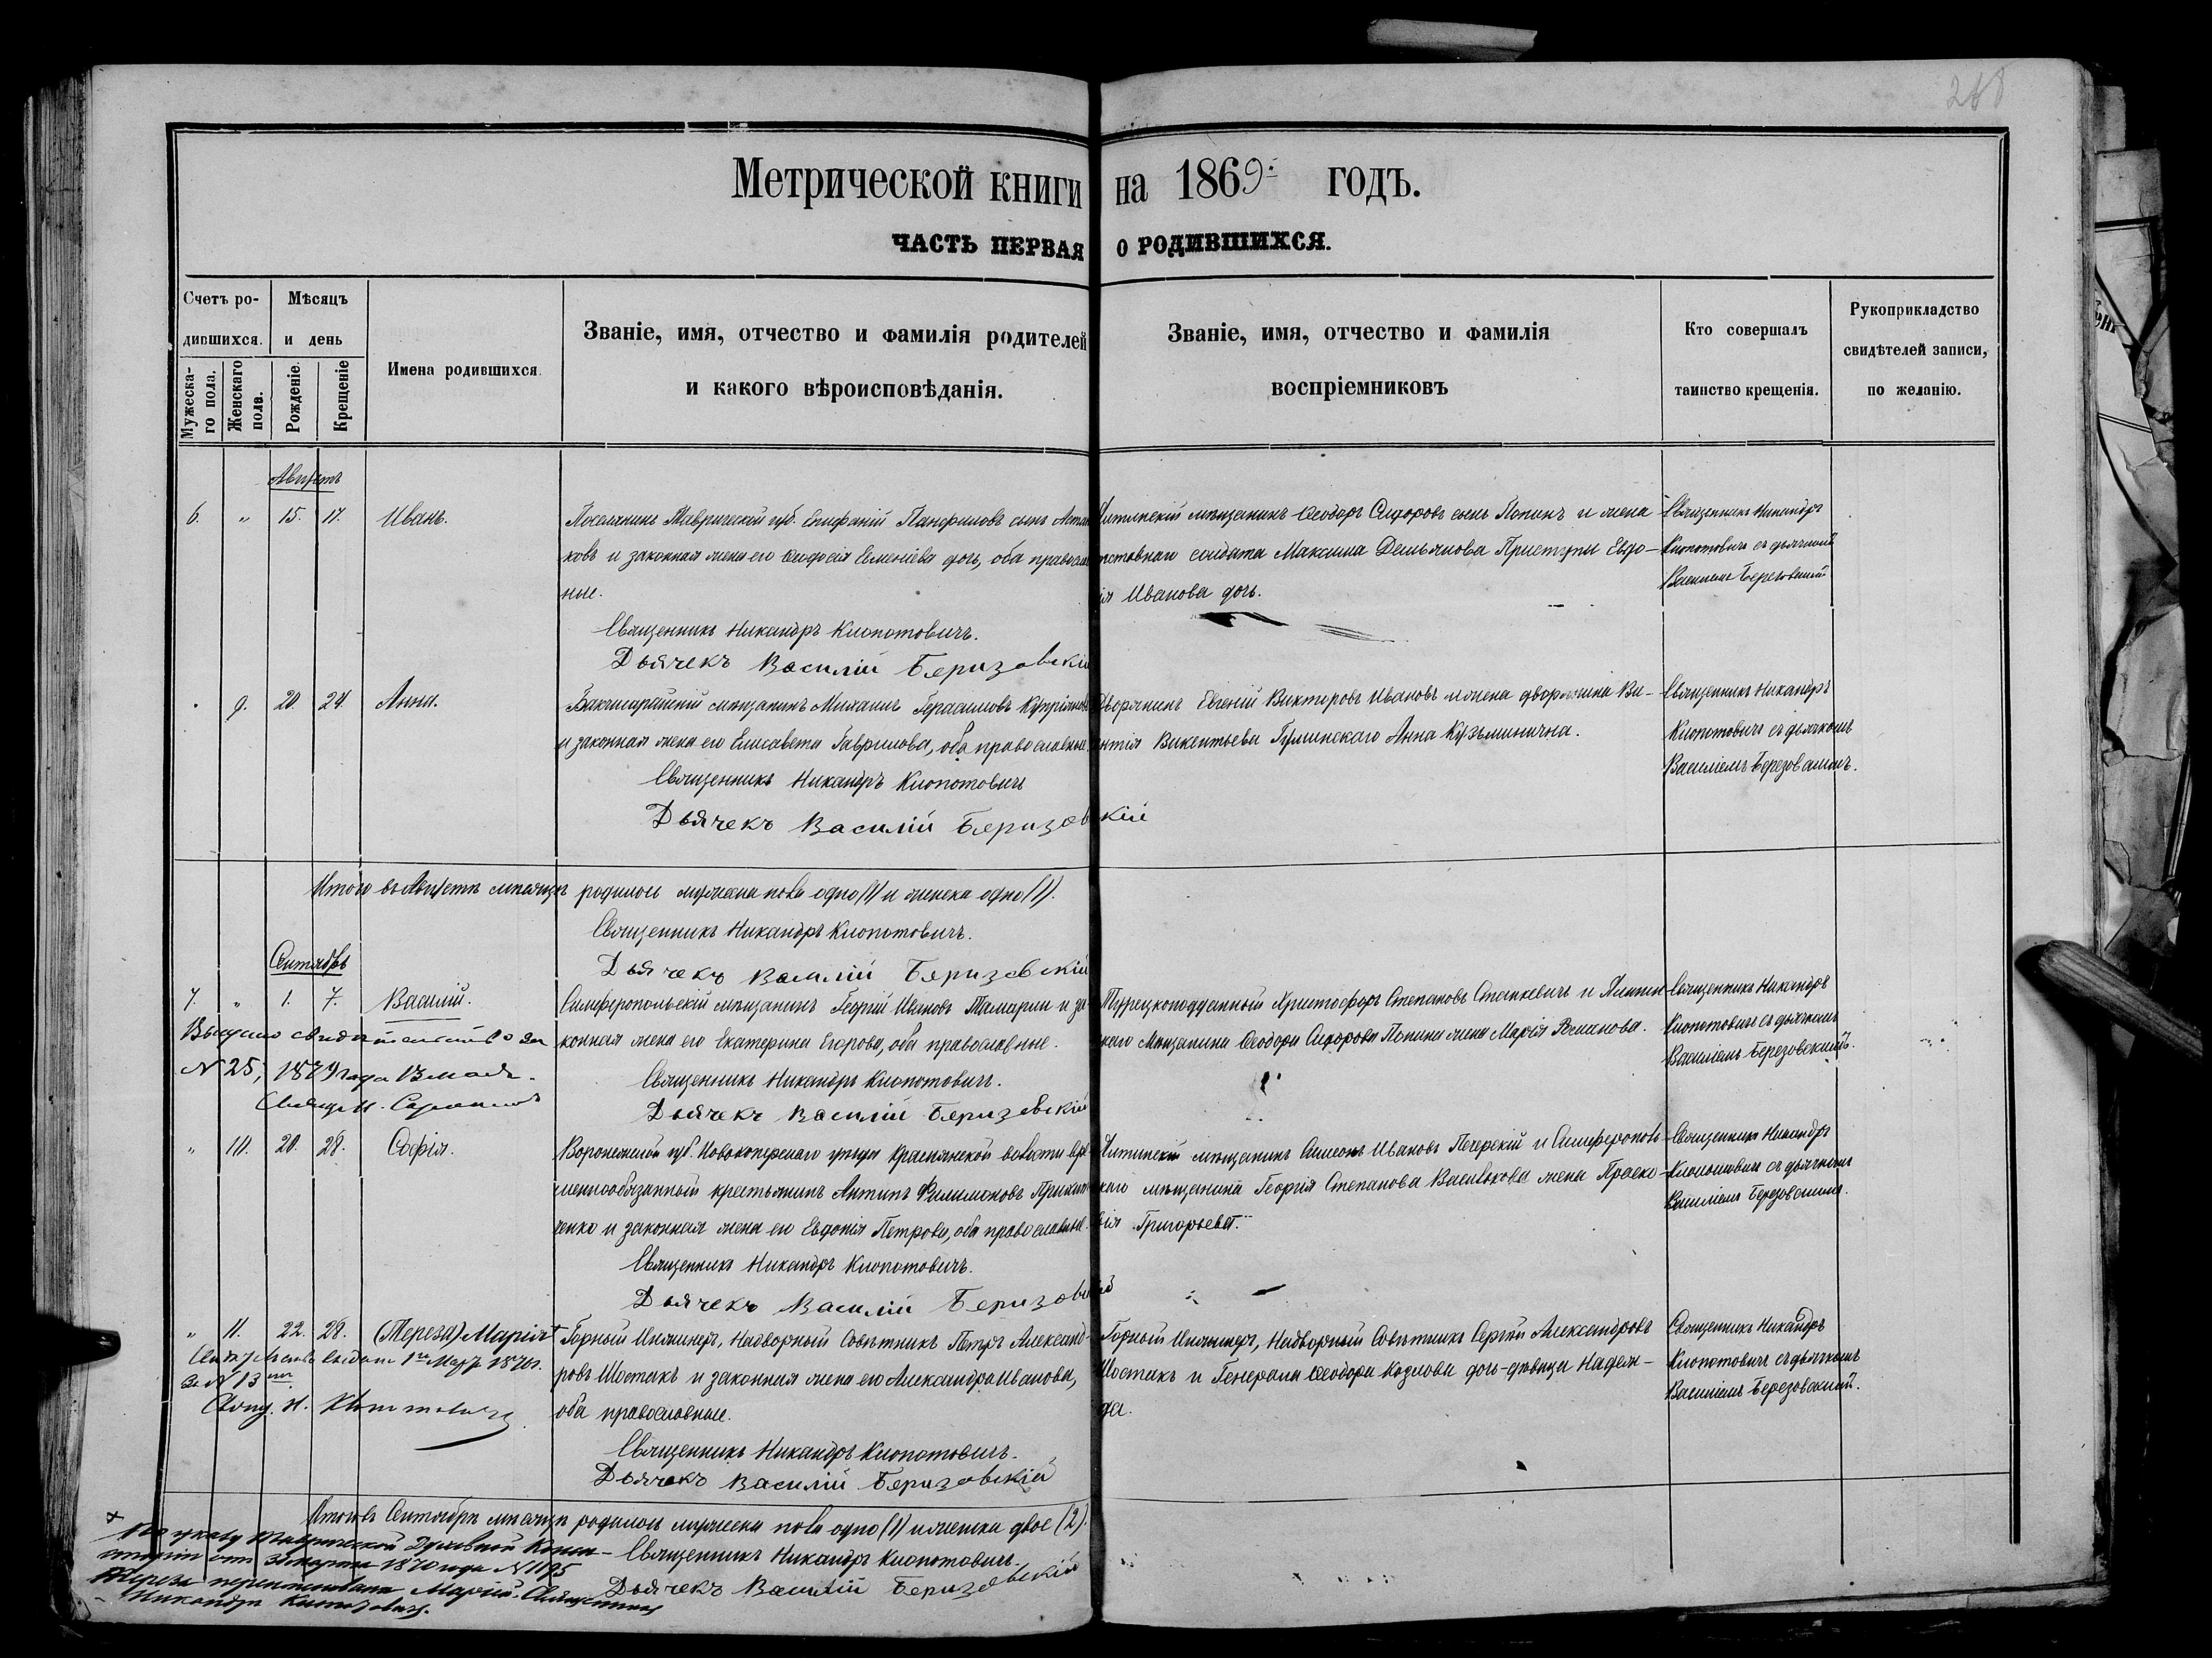 268
Метрической книги на 1869 годъ.
ЧАСТЬ ПЕРВАЯ О РОДИВШИХСЯ.
Счетъ родившихся.
Мужескаго пола.
Женскаго пола.
Мѣсяцъ и день
Рожденіе.
Крещеніе
Имена родившихся.
Званіе, имя, отчество и фамилія родителей
и какого вѣроисповѣданія.
Званіе, имя, отчество и фамилія
воспріемниковъ
Кто совершалъ
таинство крещенія.
Рукоприкладство
свидѣтелей записи,
по желанію.
Августъ
6. " 15. 17. Иванъ.
Поселянинъ Таврической губ. Епифаній Панфиловъ сынъ
ковъ и законная жена его Ѳеодосія Евменіева дочь, оба православ
ные.
Священникъ Никандръ Клопотовичъ.
Дьячекъ Василій Беризовскій
Ялтинскій мѣщанинъ Ѳеодоръ Сидоровъ сынъ Попинъ и жена
солдата Максима Демьянова Приступы Евдо-
ія Иванова дочь.
Священникъ Никандръ
Клопотовичъ съ дьячкомъ
Василіемъ Березовскимъ
" 9. 20 24 Анна.
Бакчисарайскій мѣщанинъ Михаилъ Герасимовъ Купріяновъ
и законная жена его Елисавета Гаврилова, оба православные.
Священникъ Никандръ Клопотовичъ
Дьячекъ Василій Беризовскій
Дворянинъ Евгеній Викторовъ Ивановъ и жена дворянина Ви-
ентія Викентьева Гулинскаго Анна Кузьминична.
Священникъ Никандръ
Клопотовичъ съ дьячкомъ
Василіемъ Березовскимъ.
Итого въ Августѣ мѣсяцѣ родилось мужеска пола одно (1) и женска одно (1).
Священникъ Никандръ Клопотовичъ.
Дьячекъ Василій Беризовскій
Сентябрь
7. " 1. 7. Василій.
Выдано свидѣтельство за
N 25, 1879 года 13 мая.
Симферопольскій мѣщанинъ Георгій Ивановъ Тамарин и за
конная жена его Екатерина Егорова, оба православные.
Священникъ Никандръ Клопотовичъ.
Дьячекъ Василій Беризовскій
Турецкоподданный Христофоръ Степановъ Станкевичъ и Ялтин
скаго Мѣщанина Ѳеодора Сидорова Попина жена Марія Романова.
Священникъ Никандръ
Клопотовичъ съ дьячкомъ
Василіемъ Березовскимъ.
" 10. 20. 28. Софія.
Воронежской губ. Новохоперскаго уѣзда Краснянской волости вре
меннообязанный крестьянинъ Антипъ Филимоновъ
ченко и законная жена его Евдокія Петрова, оба православные.
Священникъ Никандръ Клопотовичъ.
Дьячекъ Василій Беризовскій
Ялтинскій мѣщанинъ Симеонъ Ивановъ Печерскій и Симферополь
скаго мѣщанина Георгія Степанова Василькова жена Праско-
вія Григорьева.
Священникъ Никандръ
Клопотовичъ съ дьячкомъ
Василіемъ Березовскимъ.
" 11. 22. 28. (Тереза) Марія +
выдано 1го Мар. 1870г.
за N 13
Свящ. Н. Клопотовичъ
Горный Инженеръ, Надворный Совѣтникъ Петръ Александ
ровъ Шостакъ и законная жена его Александра Иванова,
оба православные.
Священникъ Никандръ Клопотовичъ.
Дьячекъ Василій Беризовскій
Горный Инженеръ, Надворный Совѣтникъ Сергѣй Александровъ
Шостакъ и Генерала Ѳеодора Козлова дочь-дѣвица Надеж-
да.
Священникъ Никандръ
Клопотовичъ съ дьячкомъ
Василіемъ Березовскимъ.
Итого въ Сентябрѣ мѣсяцѣ родилось мужеска пола одно (1) и женска двое (2).
Священникъ Никандръ Клопотовичъ.
Дьячекъ Василій Беризовскій
+
По указу Таврической Духовной Конси-
сторіи отъ марта 1870 года N 1195
Тереза переименована Маріей. Священникъ
Никандръ Клопотовичъ.